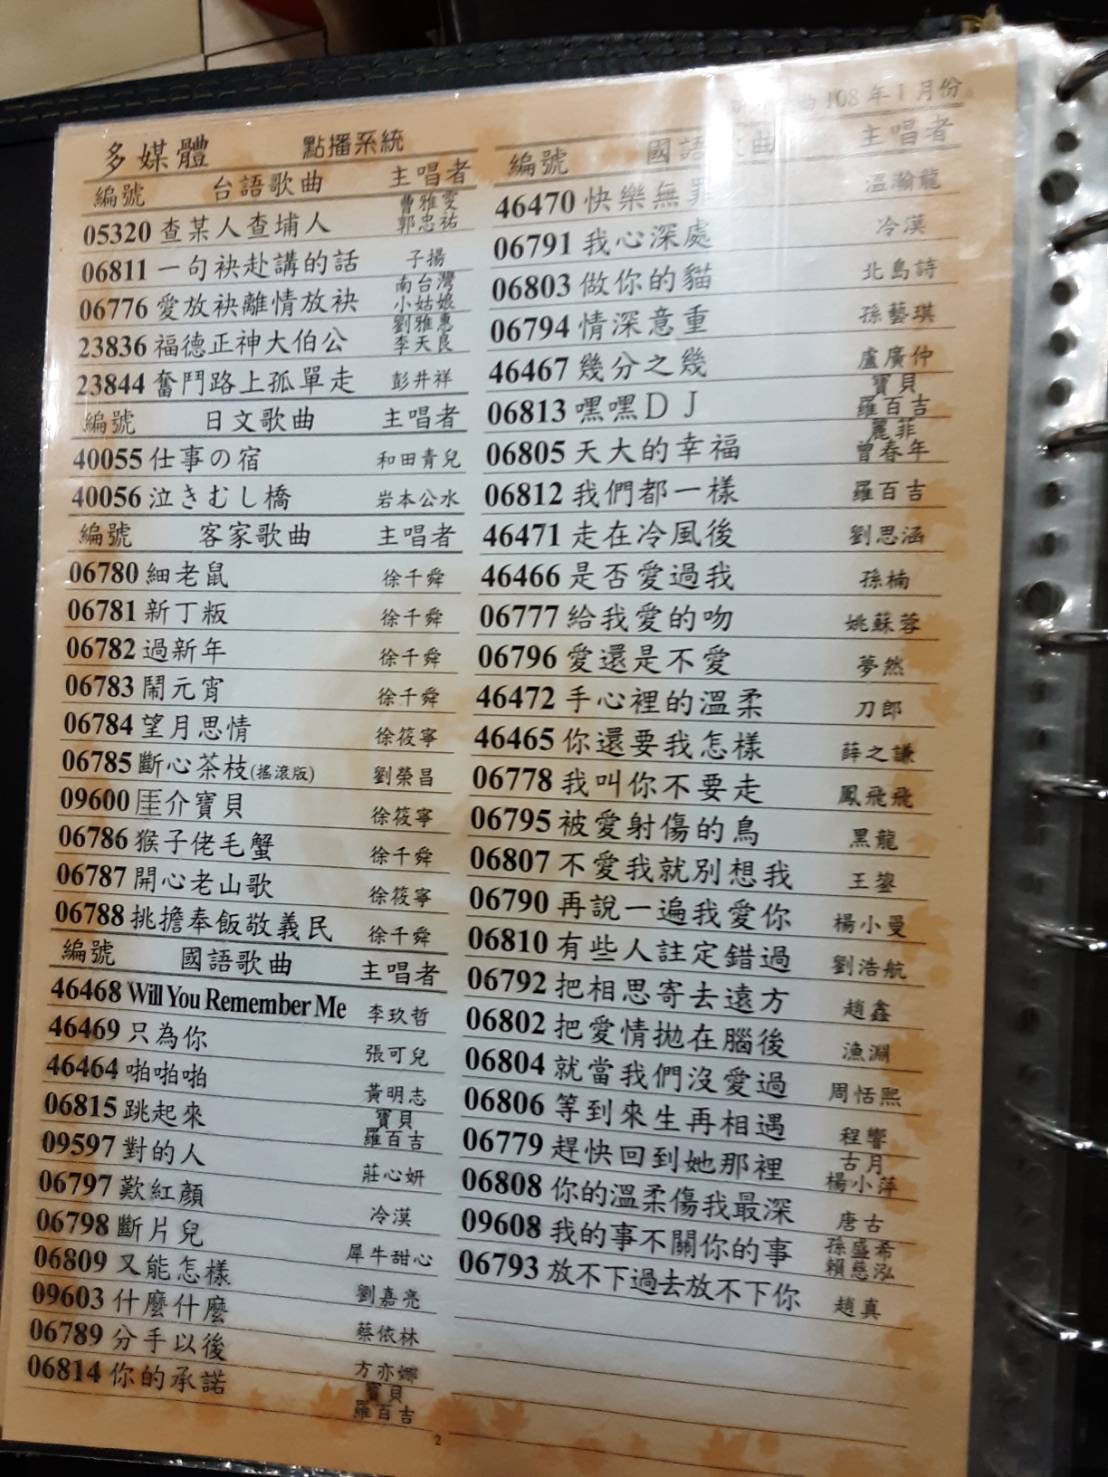 108年1月份
多媒體 點播系統
編號 台語歌曲 主唱者
05320 查某人查埔人 曹雅雯 郭忠祐
06811 一句袂赴講的話 子揚
06776 愛放袂離情放袂 南台灣小姑娘
23836 福德正神大伯公 劉雅惠 李天良
23844 奮鬥路上孤單走 彭井祥
編號 日文歌曲 主唱者
40055 仕事の宿 和田青兒
40056 泣きむし橋 岩本公水
編號 客家歌曲 主唱者
06780 細老鼠 徐千舜
06781 新丁粄 徐千舜
06782 過新年 徐千舜
06783 鬧元宵 徐千舜
06784 望月思情 徐筱寧
06785 斷心茶枝(搖滾版) 劉榮昌
09600 𠊎介寶貝 徐筱寧
06786 猴子佬毛蟹 徐千舜
06787 開心老山歌 徐筱寧
06788 挑擔奉飯敬義民 徐千舜
編號 國語歌曲 主唱者
46468 Will You Remember Me 李玖哲
46469 只為你 張可兒
46464 啪啪啪 黃明志
06815 跳起來 寶貝 羅百吉
09597 對的人 莊心妍
06797 歎紅顏 冷漠
06798 斷片兒 犀牛甜心
06809 又能怎樣 劉嘉亮
09603 什麼什麼 蔡依林
06789 分手以後 方亦娜
06814 你的承諾 寶貝 羅百吉
編號 國語歌曲 主唱者
46470 快樂無罪 溫瀚龍
06791 我心深處 冷漠
06803 做你的貓 北島詩
06794 情深意重 孫藝琪
46467 幾分之幾 盧廣仲
06813 嘿嘿DJ 寶貝 羅百吉
06805 天大的幸福 麗菲 曾春年
06812 我們都一樣 羅百吉
46471 走在冷風後 劉思涵
46466 是否愛過我 孫楠
06777 給我愛的吻 姚蘇蓉
06796 愛還是不愛 夢然
46472 手心裡的溫柔 刀郎
46465 你還要我怎樣 薛之謙
06778 我叫你不要走 鳳飛飛
06795 被愛射傷的鳥 黑龍
06807 不愛我就別想我 王鋆
06790 再說一遍我愛你 楊小曼
06810 有些人註定錯過 劉浩航
06792 把相思寄去遠方 趙鑫
06802 把愛情拋在腦後 漁淵
06804 就當我們沒愛過 周恬熙
06806 等到來生再相遇 程響
06779 趕快回到她那裡 古月 楊小萍
06808 你的溫柔傷我最深 唐古
09608 我的事不關你的事 孫盛希 賴慈泓
06793 放不下過去放不下你 趙真
2